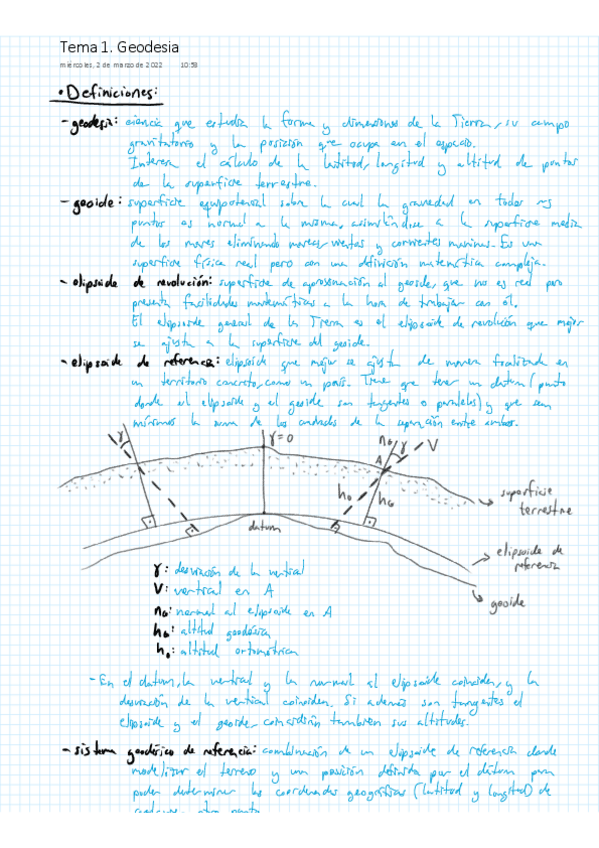 Tema 1. Geodesia
miércoles, 2 de marzo de 2022 10:58
• Definiciones:
- geodesia: ciencia que estudia la forma y dimensiones de la Tierra, su campo
gravitatorio y la posición que ocupa en el espacio.
Interesa el cálculo de la latitud, longitud y altitud de puntos
de la superficie terrestre.
- geoide: superficie equipotencial sobre la cual la gravedad en todos sus
puntos es normal a la misma, asimilándose a la superficie media
de los mares eliminando mareas, vientos y corrientes marinas. Es una
superficie física real pero con una definición matemática compleja.
- elipsoide de revolución: superficie de aproximación al geoide, que no es real pero
presenta facilidades matemáticas a la hora de trabajar con él.
El elipsoide general de la Tierra es el elipsoide de revolución que mejor
se ajusta a la superficie del geoide.
- elipsoide de referencia: elipsoide que mejor se ajusta de manera focalizada en
un territorio concreto, como un país. Tiene que tener un datum (punto
donde el elipsoide y el geoide son tangentes o paralelos) y que sean
mínimos la suma de los cuadrados de la separación entre ambos.
γ
γ = 0
nG γ V
A
ho hG
superficie
terrestre
datum
elipsoide de
referencia
geoide
γ: desviación de la vertical
V: vertical en A
nG: normal al elipsoide en A
hG: altitud geodésica
ho: altitud ortométrica
- En el datum, la vertical y la normal al elipsoide coinciden, y la
desviación de la vertical coinciden. Si además son tangentes el
elipsoide y el geoide, coincidirán también sus altitudes.
- sistema geodésico de referencia: combinación de un elipsoide de referencia donde
modelizar el terreno y una posición definida por el dátum para
poder determinar las coordenadas geográficas (latitud y longitud) de